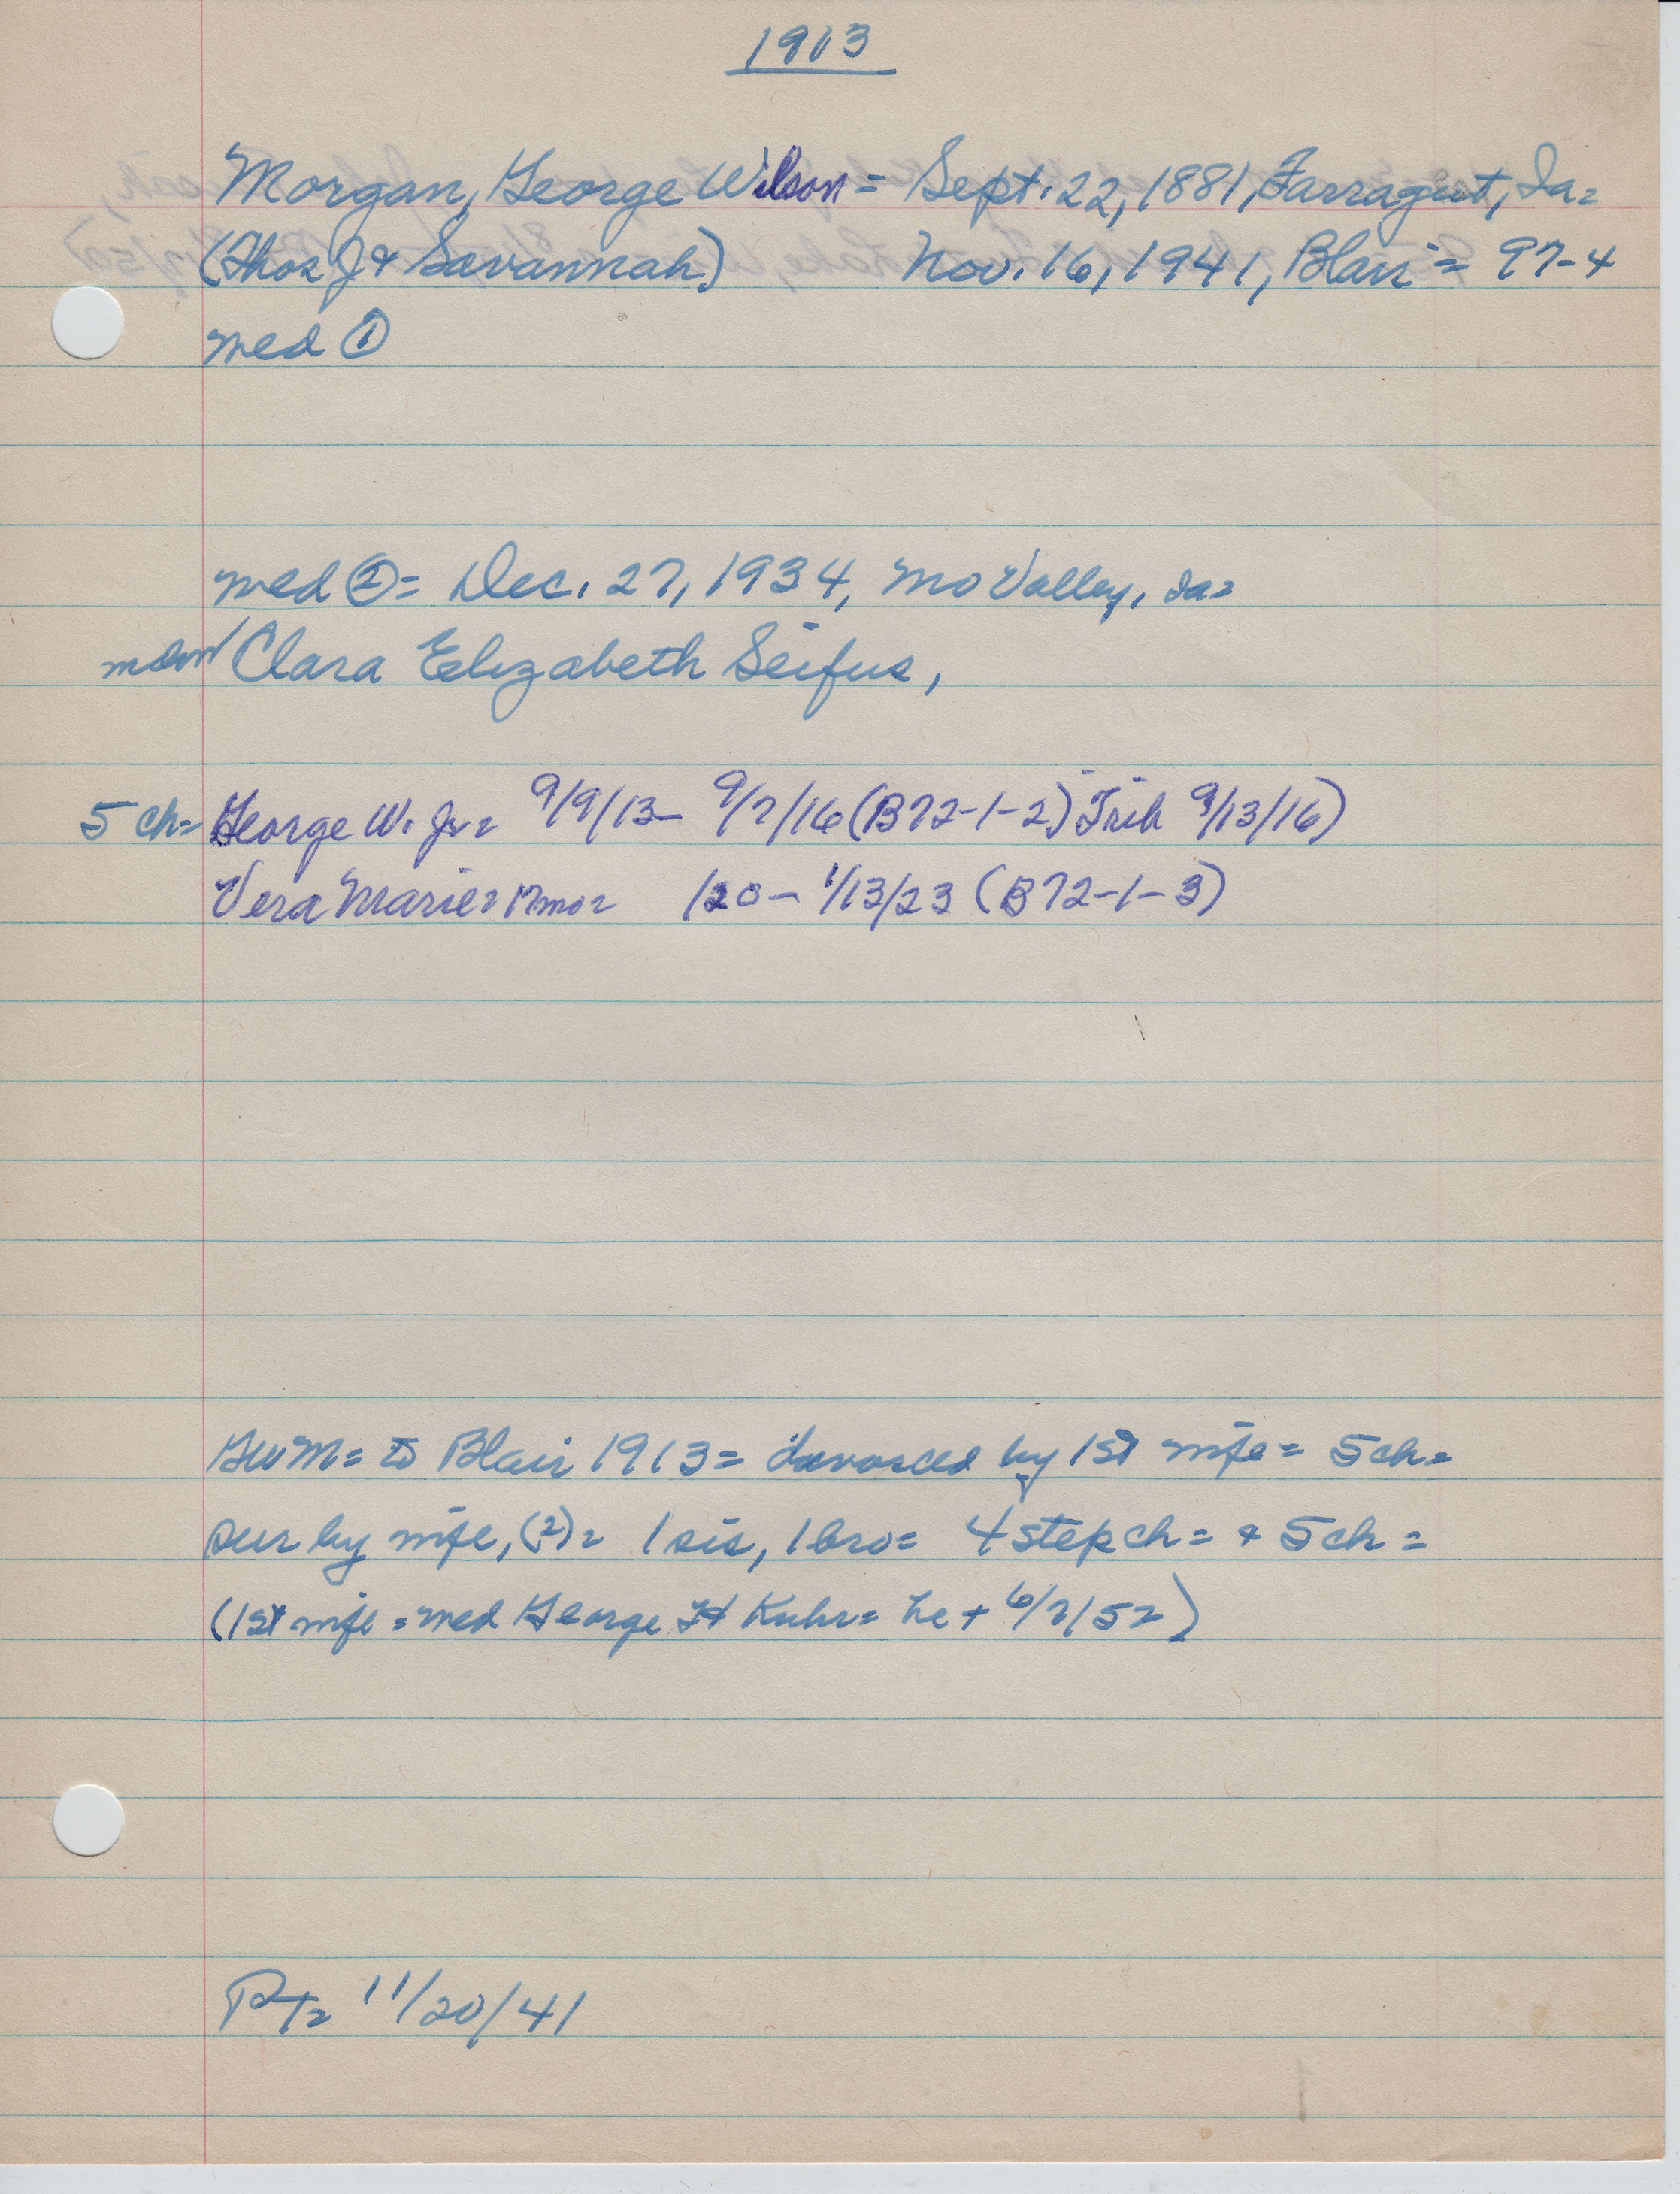 1913
Morgan, George Wilson = Sept. 22, 1881, Farragut, Ia=
(Thos J & Savannah) Nov. 16, 1941, Blair = 97-4
med ①
med ② = Dec. 27, 1934, Mo Valley, Ia=
Clara Elizabeth Seifus,
5 ch= George W. Jr= 9/9/13- 9/7/16 (B72-1-2) Trib 9/13/16)
Vera Marie= 17mo= /20- 1/13/23 (B72-1-3)
GWM= to Blair 1913= by 1st wife= 5ch=
sur by wife, (2)= 1 sis, 1 bro= 4 step ch= & 5 ch=
(1st wife = med George H Kuhr= he + 6/7/52)
PT= 11/20/41